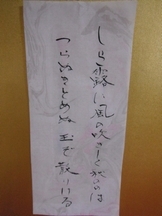 しら露に風の吹きしく秋のは
つらぬきとめぬ玉ぞ散りける